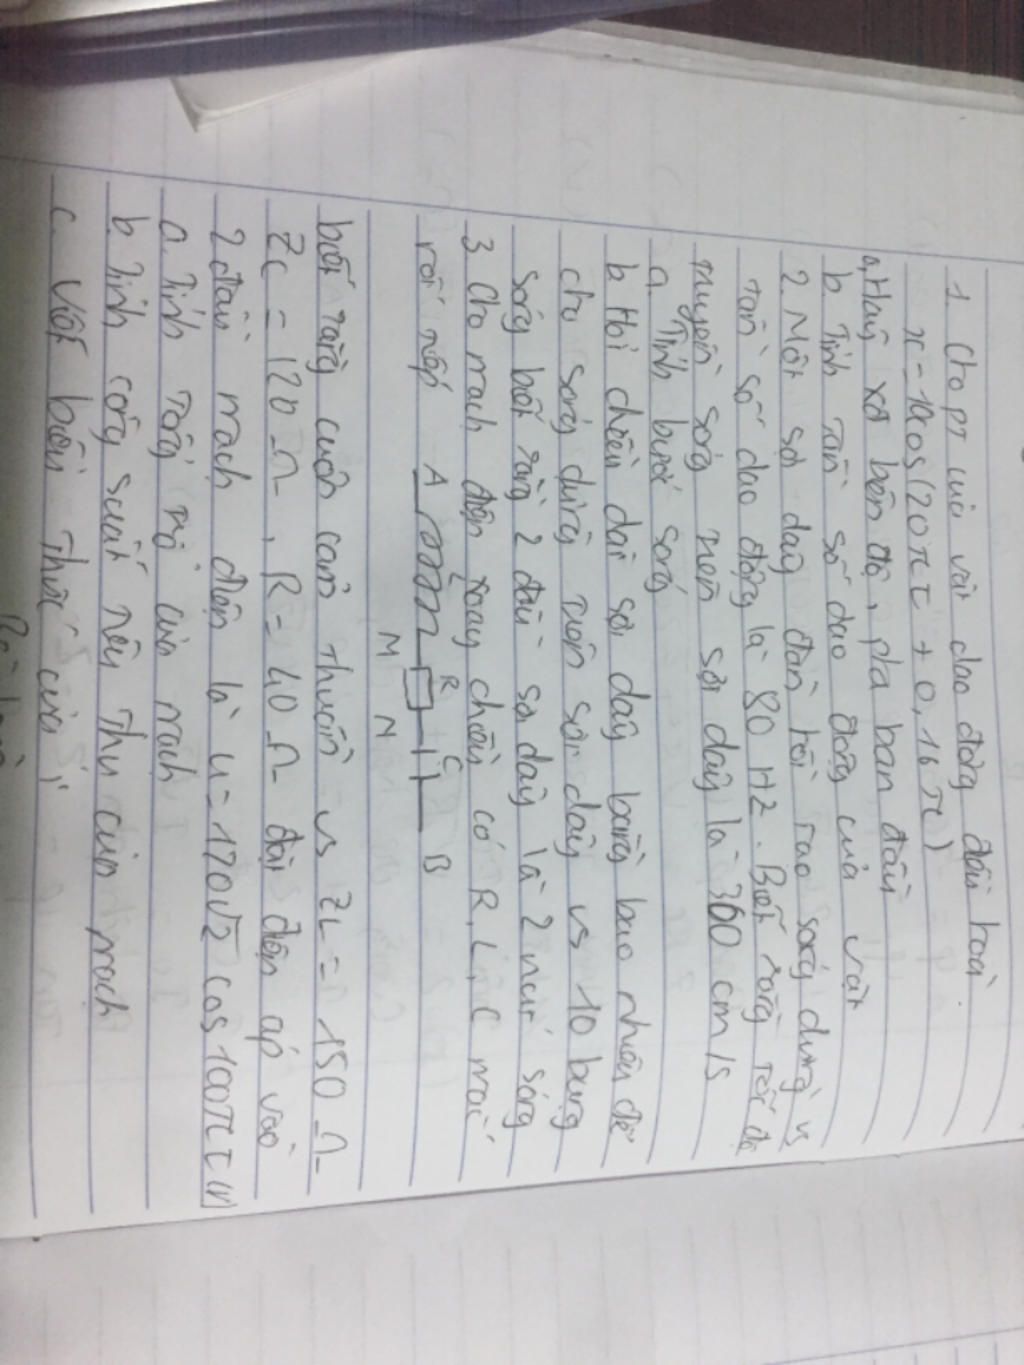 1. Cho pt của vật dao động điều hoà
x = 10cos(20πt + 0,16π)
a, Hãy xđ biên độ, pha ban đầu
b. Tính tần số dao động của vật
2. Một sợi dây đàn hồi tạo sóng dừng vs
tần số dao động là 80 Hz. Biết rằng tốc độ
truyền sóng trên sợi dây là 360 cm/s
a. Tính bước sóng
b. Hỏi chiều dài sợi dây bằng bao nhiêu để
cho sóng dừng trên sợi dây vs 10 bụng
sóng biết rằng 2 đầu sợi dây là 2 nút sóng
3. Cho mạch điện xoay chiều có R, L, C mắc
nối tiếp
L R C
A B
M N
biết rằng cuộn cảm thuần vs ZL = 150 Ω
Zc = 120 Ω, R = 40 Ω đặt điện áp vào
2 đầu mạch điện là u = 120√2 cos 100πt (V)
a. Tính tổng trở của mạch
b. Tính công suất tiêu thụ của mạch
c. Viết biểu thức của i